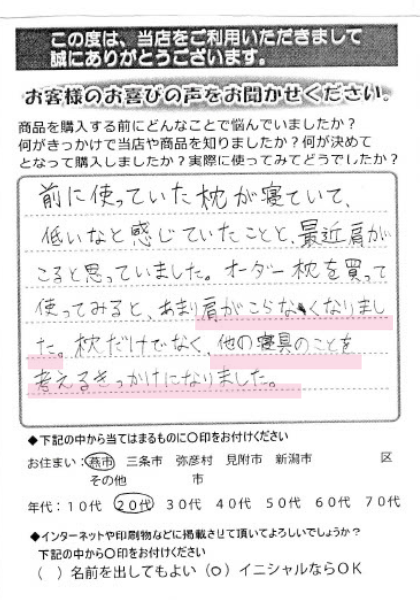 この度は、当店をご利用いただきまして
誠にありがとうございます。
お客様のお喜びの声をお聞かせください。
商品を購入する前にどんなことで悩んでいましたか?
何がきっかけで当店や商品を知りましたか?何が決めて
となって購入しましたか?実際に使ってみてどうでしたか?
前に使っていた枕が寝ていて、
低いなと感じていたことと、最近肩が
こると思っていました。オーダー枕を買って
使ってみると、あまり肩がこらなくなりまし
た。枕だけでなく、他の寝具のことを
考えるきっかけになりました。
◆下記の中から当てはまるものに○印をお付けください
お住まい:燕市 三条市 弥彦村 見附市 新潟市 区
その他 市
年代:10代 20代 30代 40代 50代 60代 70代
◆インターネットや印刷物などに掲載させて頂いてよろしいでしょうか?
下記の中から○印をお付けください
( )名前を出してもよい (○)イニシャルならOK